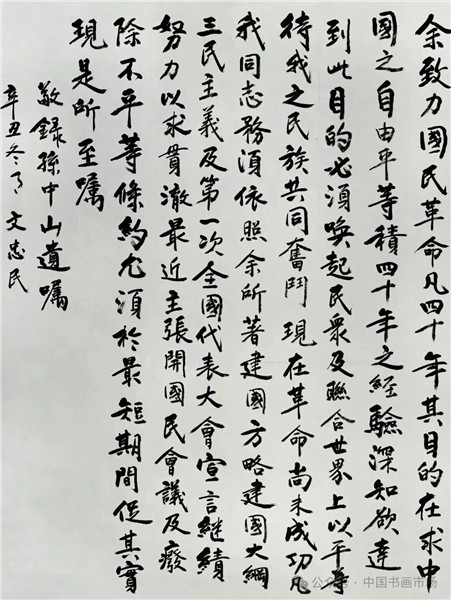 余致力國民革命凡四十年其目的在求中
國之自由平等積四十年之經驗深知欲達
到此目的必須喚起民衆及聯合世界上以平等
待我之民族共同奮鬥現在革命尚未成功凡
我同志務須依照余所著建國方略建國大綱
三民主義及第一次全國代表大會宣言継續
努力以求貫澈最近主張開國民會議及廢
除不平等條約尤須於最短期間促其實
現是所至囑
敬錄孫中山遺囑
辛丑冬月文忠民
公众号·中国书画市场